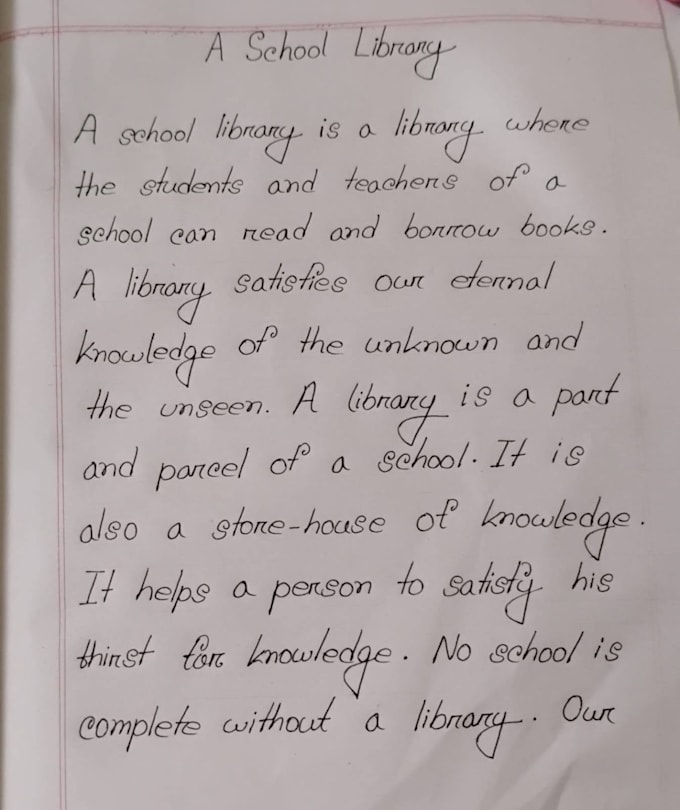 A School Library
A school library is a library where
the students and teachers of a
school can read and borrow books.
A library satisfies our eternal
knowledge of the unknown and
the unseen. A library is a part
and parcel of a school. It is
also a store-house of knowledge.
It helps a person to satisfy his
thirst for knowledge. No school is
complete without a library. Our